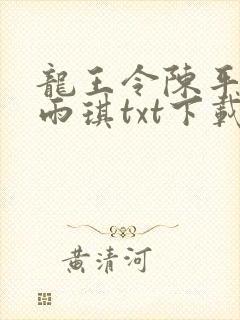 龍王令陳平
雨琪txt下載
黃清河